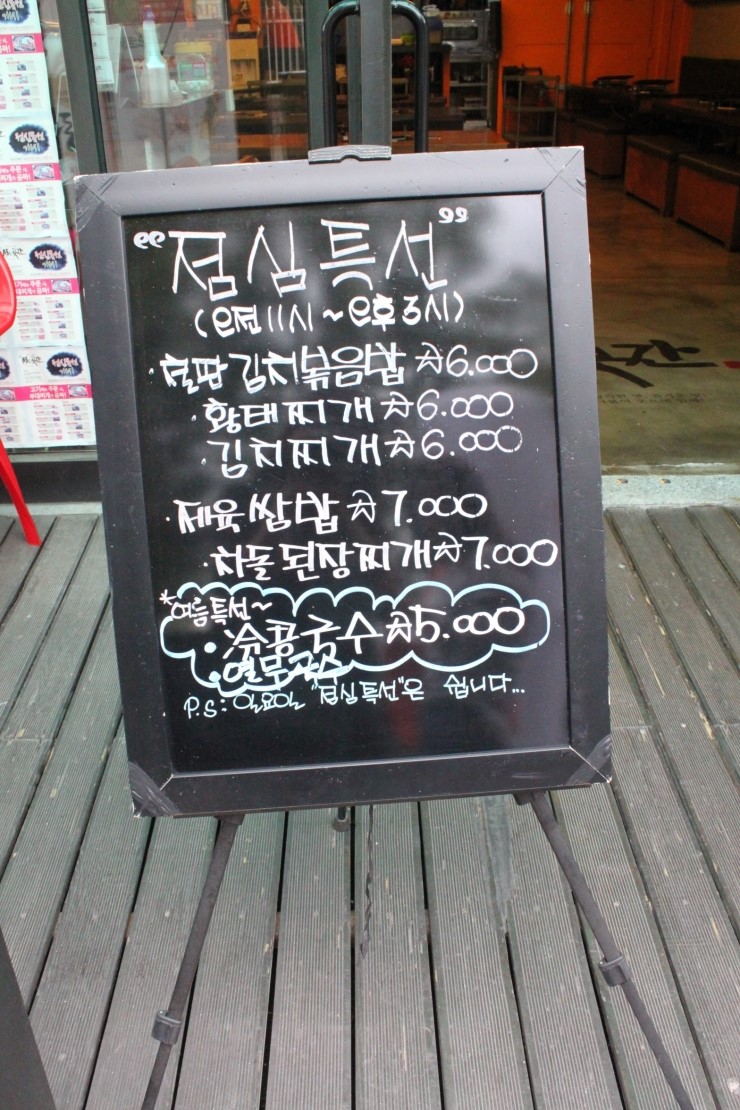 "점심특선"
(오전 11시 ~ 오후 3시)
· 철판 김치볶음밥 ₩6.000
· 황태찌개 ₩6.000
· 김치찌개 ₩6.000
· 제육쌈밥 ₩7.000
· 차돌된장찌개 ₩7.000
*여름특선~
· 冷콩국수 ₩5.000
· 열무국수
P.S: 일요일 "점심특선"은 쉽니다...